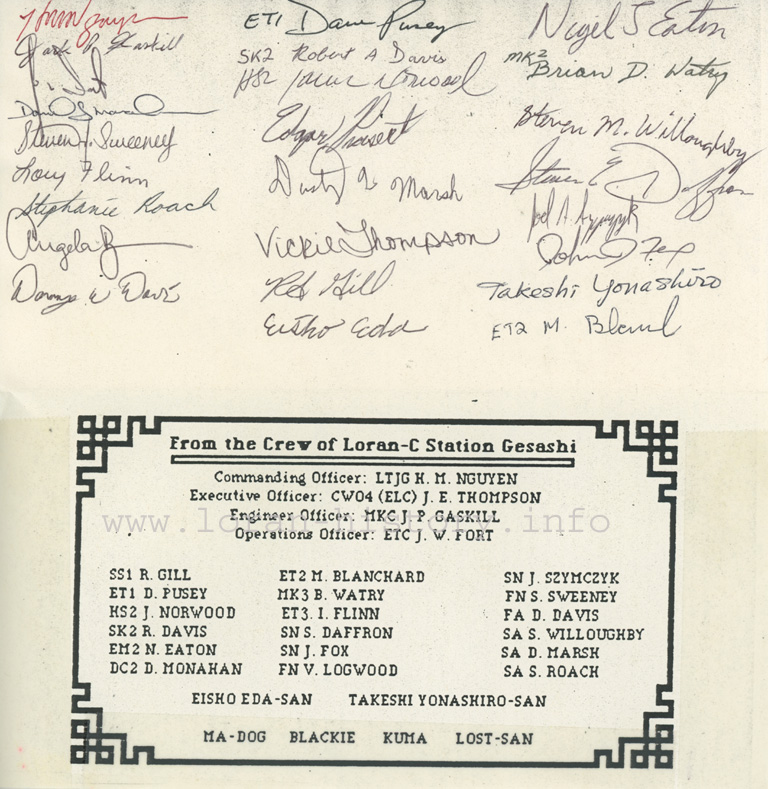 ET1 Dave Pusey
Nigel J Eaton
Jack P. Gaskill
SK2 Robert A Davis
MK2 Brian D. Watry
HS2 Norwood
Steven J. Sweeney
Edgar
Steven M. Willoughby
Lory Flinn
Dusty Marsh
Steven E. Daffron
Stephanie Roach
Angela
Vickie Thompson
John D Fox
Gill
Takeshi Yonashiro
Eisho Eda
ET2 M. Bland
From the Crew of Loran-C Station Gesashi
Commanding Officer: LTJG H. M. NGUYEN
Executive Officer: CWO4 (ELC) J. E. THOMPSON
Engineer Officer: MKC J. P. GASKILL
www.loran-history.info
Operations Officer: ETC J. W. FORT
SS1 R. GILL ET2 M. BLANCHARD SN J. SZYMCZYK
ET1 D. PUSEY MK3 B. WATRY FN S. SWEENEY
HS2 J. NORWOOD ET3. I. FLINN FA D. DAVIS
SK2 R. DAVIS SN S. DAFFRON SA S. WILLOUGHBY
EM2 N. EATON SN J. FOX SA D. MARSH
DC2 D. MONAHAN FN V. LOGWOOD SA S. ROACH
EISHO EDA-SAN TAKESHI YONASHIRO-SAN
MA-DOG BLACKIE KUMA LOST-SAN